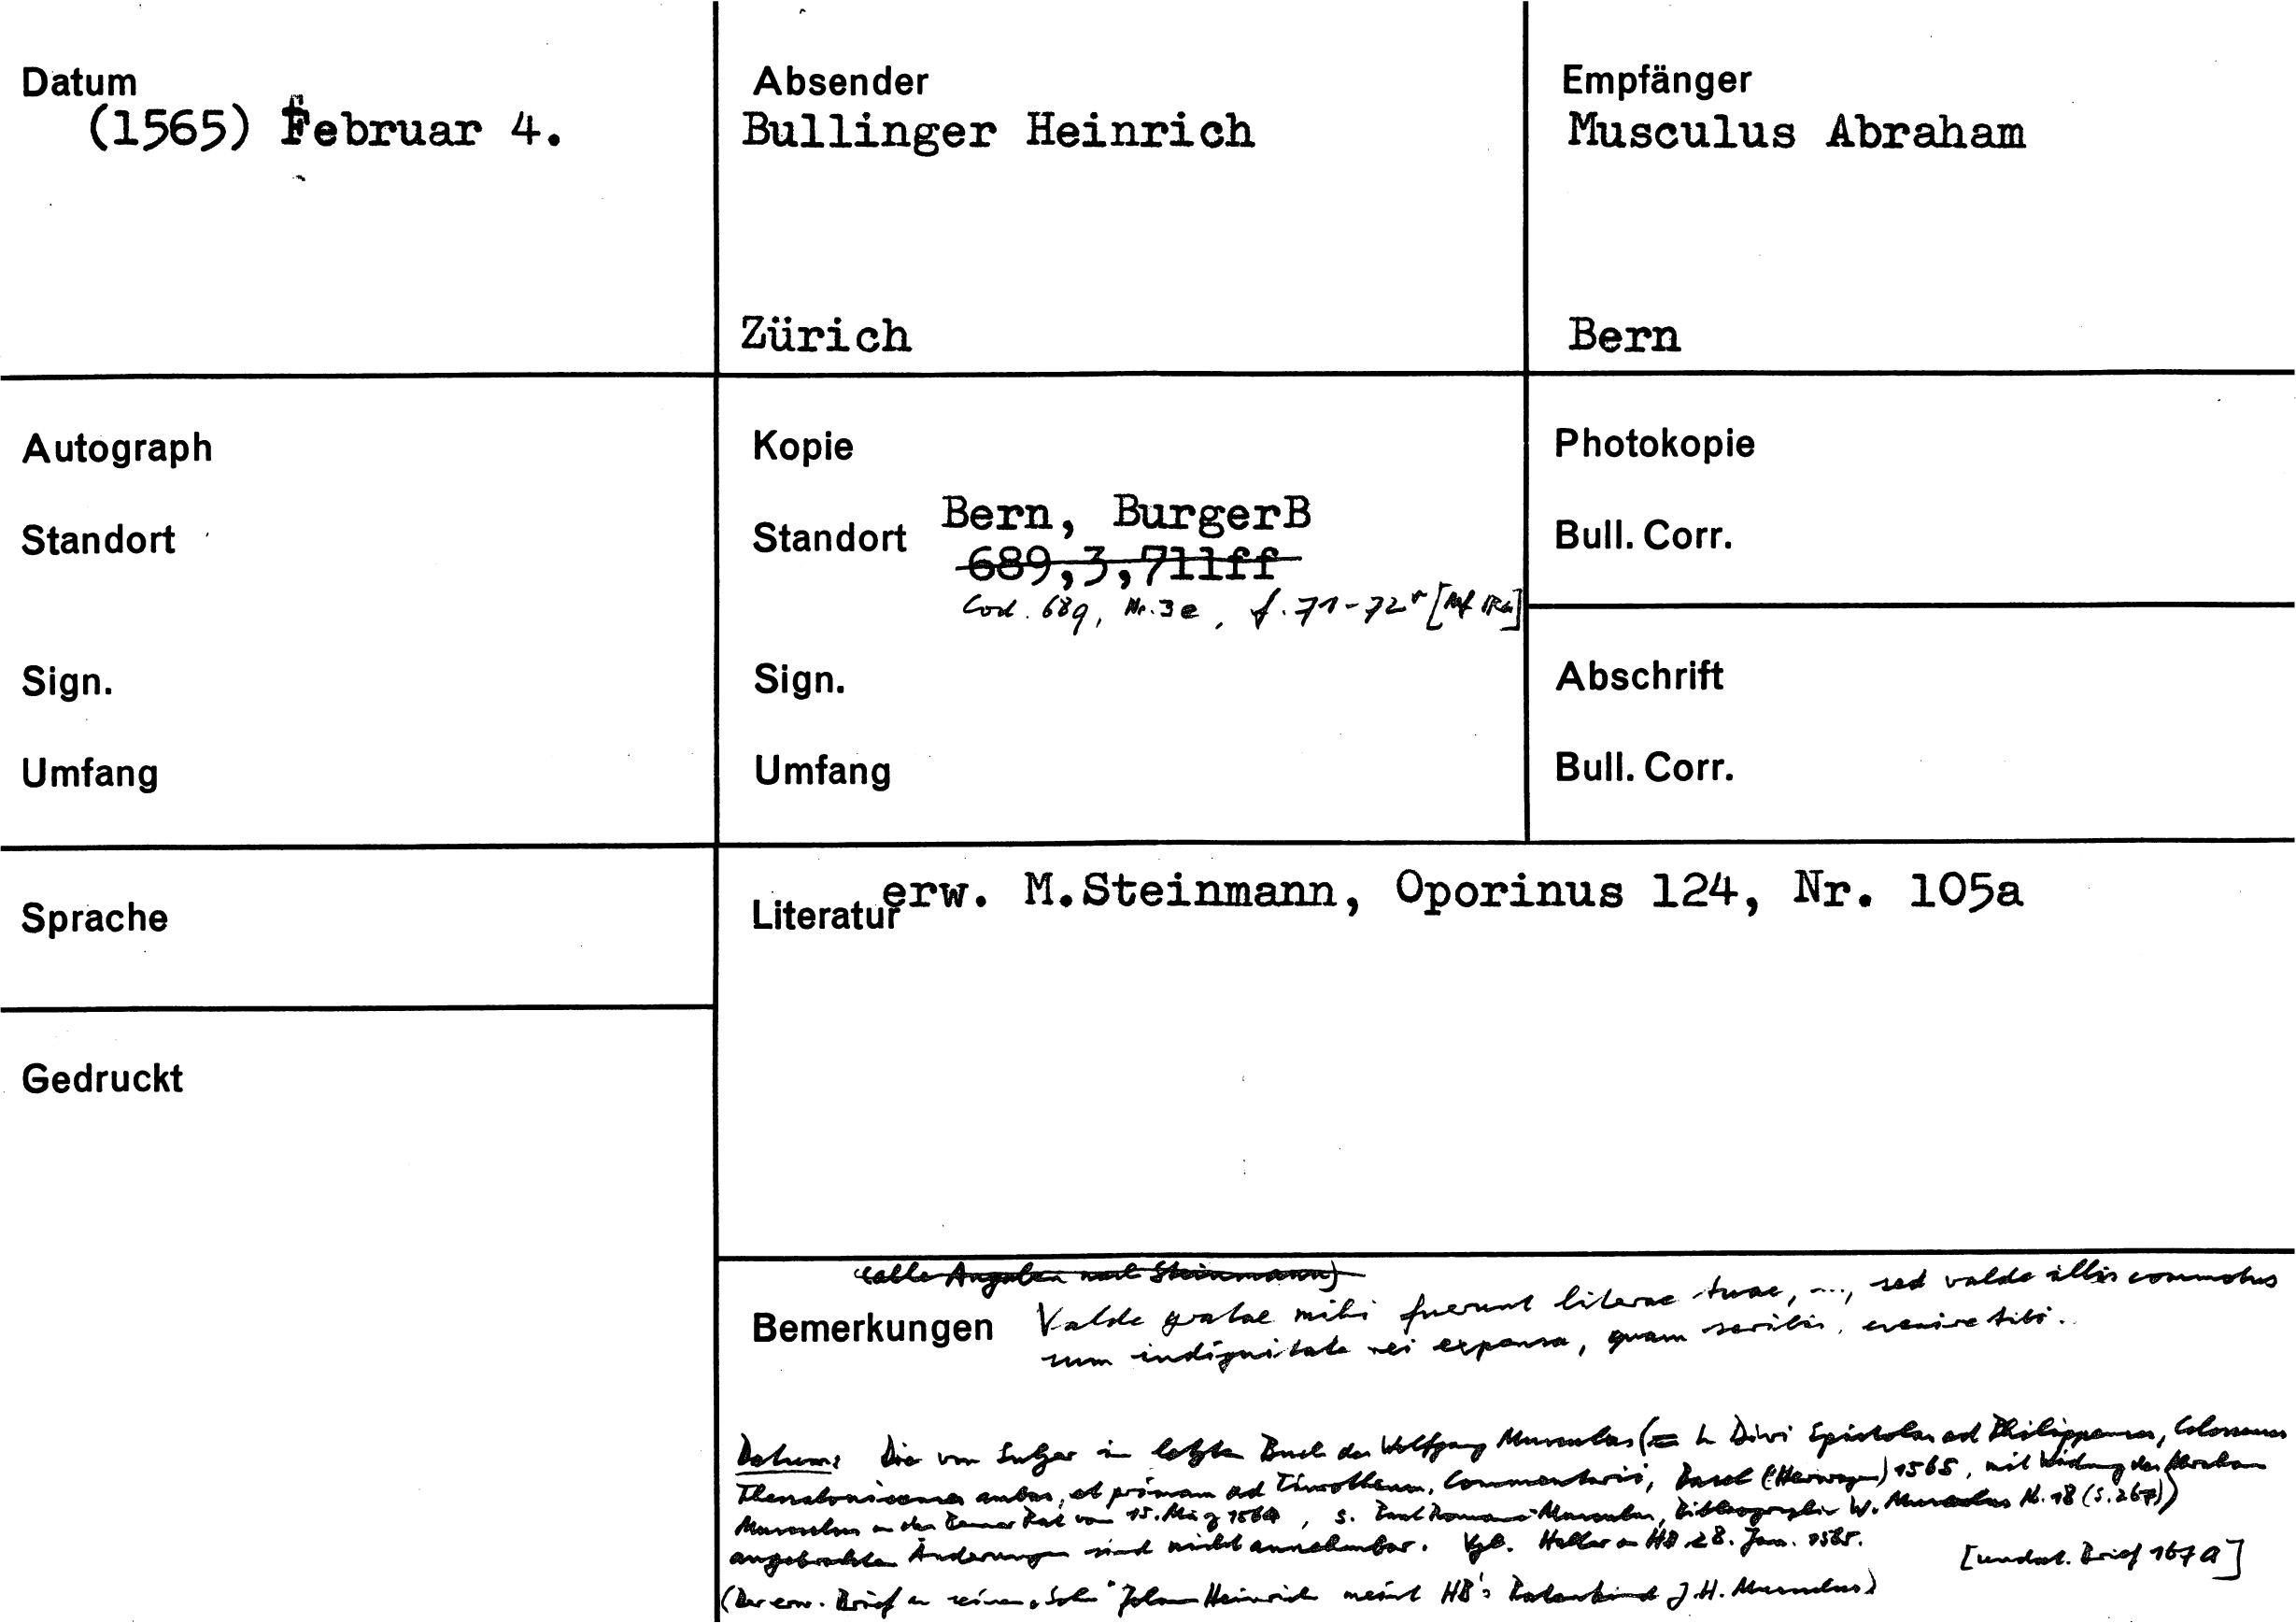 Datum
(1565) Februar 4.
Absender
Bullinger Heinrich
Zürich
Empfänger
Musculus Abraham
Bern
Autograph
Standort
Sign.
Umfang
Kopie
Standort Bern, BurgerB
689,3,711ff
Cod. 689, Nr. 3e, f. 71-72v
Sign.
Umfang
Photokopie
Bull. Corr.
Abschrift
Bull. Corr.
Sprache
Gedruckt
Literatur erw. M.Steinmann, Oporinus 124, Nr. 105a
(alle Angaben nach Steinmann)
Bemerkungen Valde gratae mihi fuerunt literae tuae, ..., sed valde illis commotus
sum indignitate rei expensa, quam scribis, evenire tibi.
Datum: Die von Sulzer im letzten Buch des Wolfgang Musculus (= In Divi Epistolas ad Philippenses, Colossenses
Thessalonicenses ambas, et primam ad Timotheum, Commentarii, Basel (Herwagen) 1565, mit Widmung des Abraham
Musculus an den Berner Rat vom 15. März 1564, s. Musculus, Bibliographie W. Musculus Nr. 18 (S. 267))
angebrachten Änderungen sind nicht annehmbar. Vgl. Haller an HB 28. Jan. 1565.
[undat. Brief 167 a]
(Der erw. Brief an seinen "Sohn" Johann Heinrich meint HB's Patenkind J.H. Musculus)